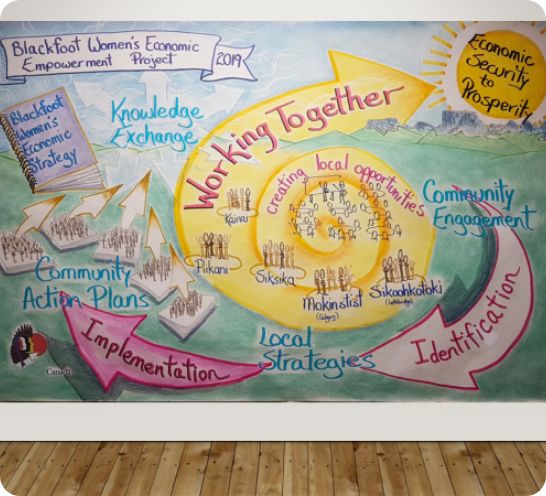 Blackfoot Women's Economic
Empowerment Project
2019
Economic
Security
to
Prosperity
Blackfoot
Women's
Economic
Strategy
Knowledge
Exchange
Working Together
creating local opportunities
Community
Engagement
Kainai
Piikani
Siksika
Mohkinstsis
(Calgary)
Sikoohkotoki
(Lethbridge)
Community
Action Plans
Identification
Local
Strategies
Implementation
Canada